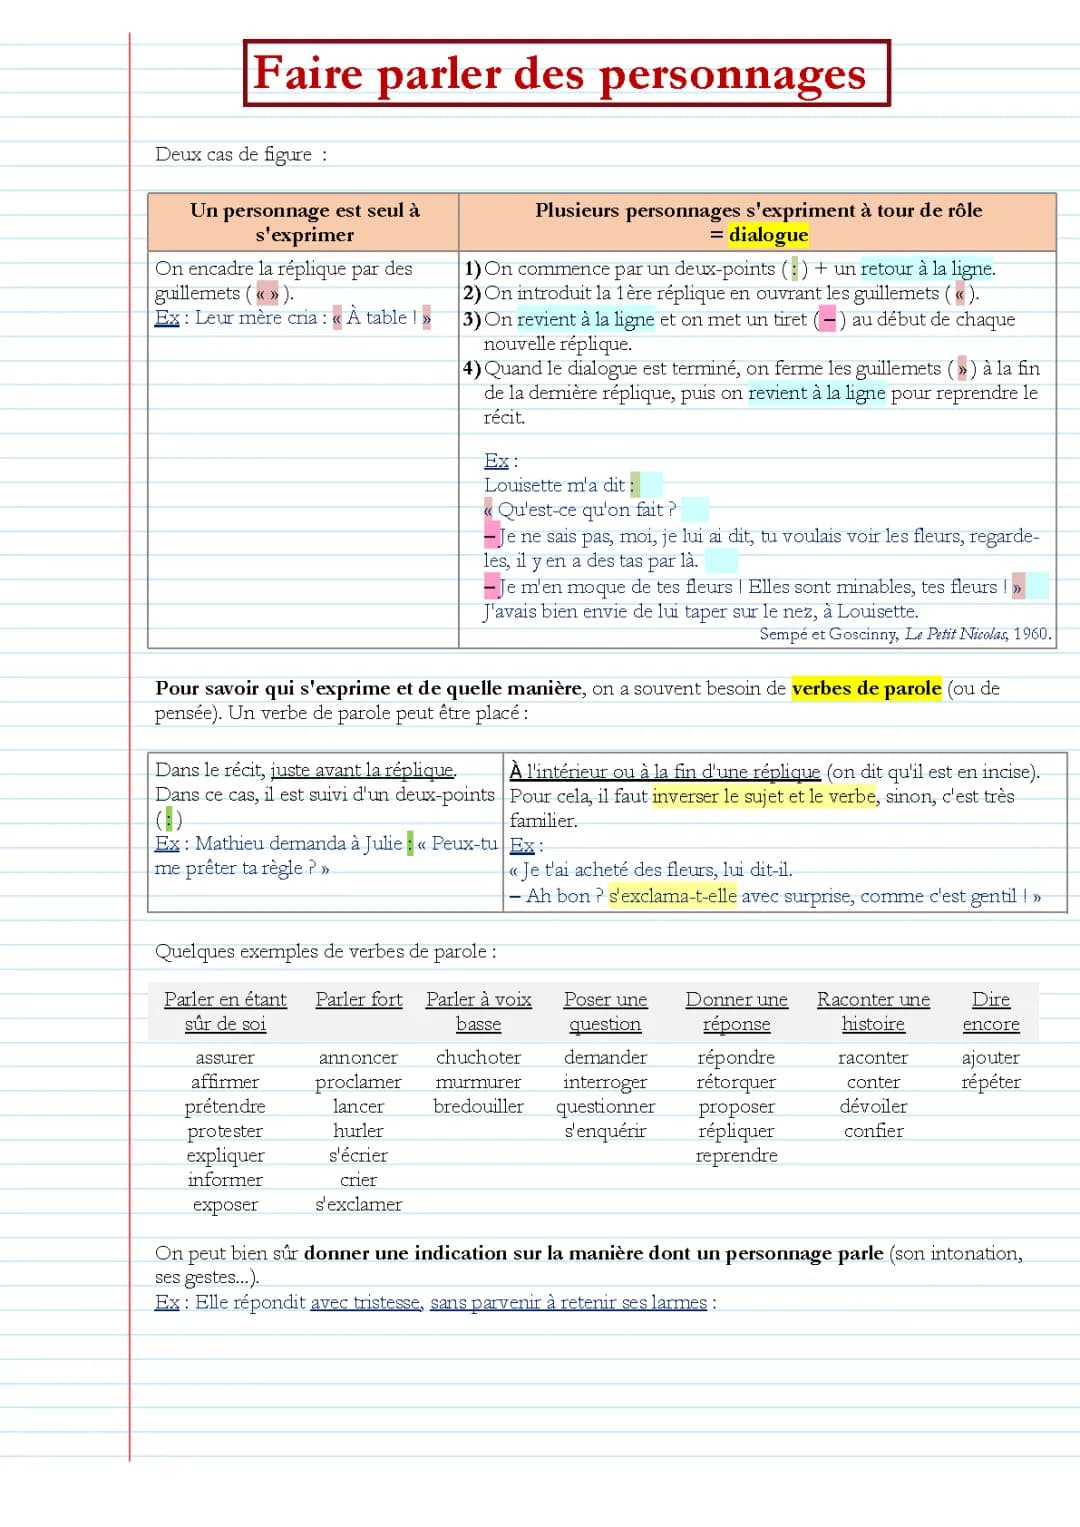 Faire parler des personnages
Deux cas de figure :
Un personnage est seul à
s'exprimer
On encadre la réplique par des
guillemets ( « » ).
Ex : Leur mère cria : « À table ! »
Plusieurs personnages s'expriment à tour de rôle
= dialogue
1) On commence par un deux-points ( : ) + un retour à la ligne.
2) On introduit la 1ère réplique en ouvrant les guillemets ( « ).
3) On revient à la ligne et on met un tiret ( – ) au début de chaque
nouvelle réplique.
4) Quand le dialogue est terminé, on ferme les guillemets ( » ) à la fin
de la dernière réplique, puis on revient à la ligne pour reprendre le
récit.
Ex :
Louisette m'a dit :
« Qu'est-ce qu'on fait ?
– Je ne sais pas, moi, je lui ai dit, tu voulais voir les fleurs, regarde-
les, il y en a des tas par là.
– Je m'en moque de tes fleurs ! Elles sont minables, tes fleurs ! »
J'avais bien envie de lui taper sur le nez, à Louisette.
Sempé et Goscinny, Le Petit Nicolas, 1960.
Pour savoir qui s'exprime et de quelle manière, on a souvent besoin de verbes de parole (ou de
pensée). Un verbe de parole peut être placé :
Dans le récit, juste avant la réplique.
Dans ce cas, il est suivi d'un deux-points
( : )
Ex : Mathieu demanda à Julie : « Peux-tu
me prêter ta règle ? »
À l'intérieur ou à la fin d'une réplique (on dit qu'il est en incise).
Pour cela, il faut inverser le sujet et le verbe, sinon, c'est très
familier.
Ex :
« Je t'ai acheté des fleurs, lui dit-il.
– Ah bon ? s'exclama-t-elle avec surprise, comme c'est gentil ! »
Quelques exemples de verbes de parole :
Parler en étant
sûr de soi
assurer
affirmer
prétendre
protester
expliquer
informer
exposer
Parler fort
annoncer
proclamer
lancer
hurler
s'écrier
crier
s'exclamer
Parler à voix
basse
chuchoter
murmurer
bredouiller
Poser une
question
demander
interroger
questionner
s'enquérir
Donner une
réponse
répondre
rétorquer
proposer
répliquer
reprendre
Raconter une
histoire
raconter
conter
dévoiler
confier
Dire
encore
ajouter
répéter
On peut bien sûr donner une indication sur la manière dont un personnage parle (son intonation,
ses gestes...).
Ex : Elle répondit avec tristesse, sans parvenir à retenir ses larmes :